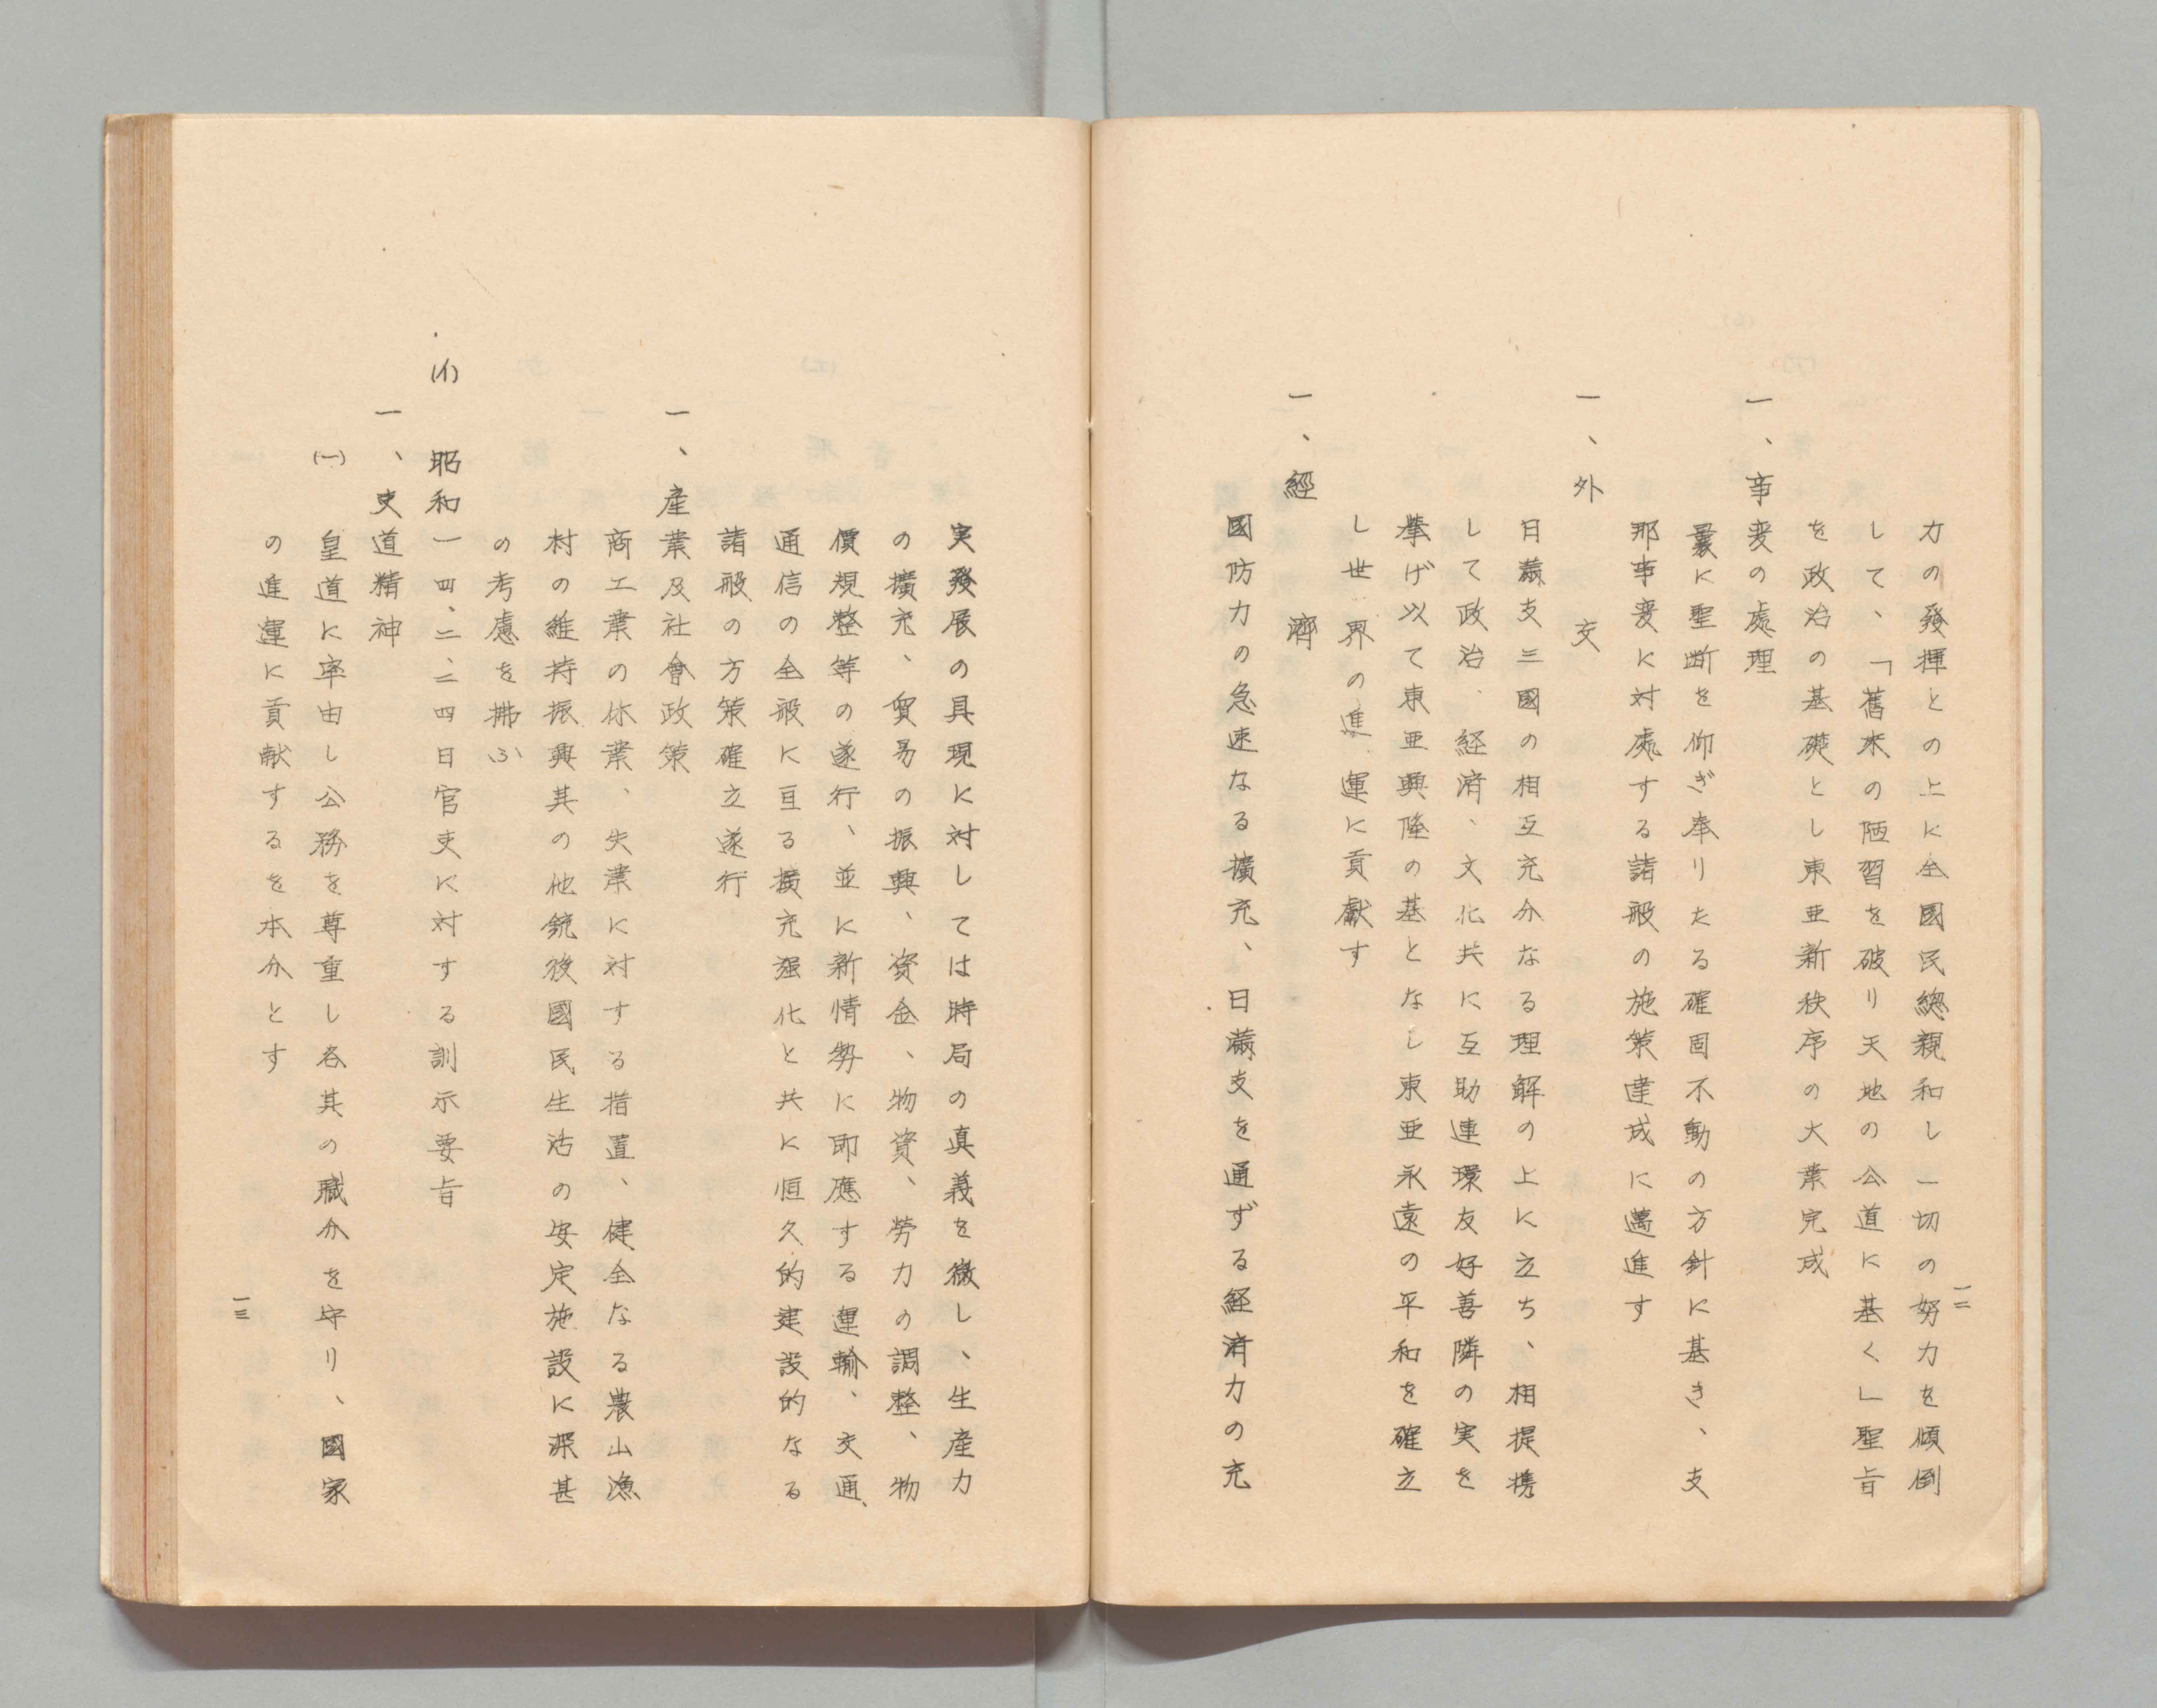 力の發揮との上に全國民總親和し一切の努力を傾倒
して、「舊来の陋習を破り天地の公道に基く」聖旨
を政治の基礎とし東亜新秩序の大業完成
一、事変の處理
曩に聖断を仰ぎ奉りたる確固不動の方針に基き、支
那事変に対處する諸般の施策達成に邁進す
一、外交
日満支三國の相互充分なる理解の上に立ち、相提携
して政治、経済、文化共に互助連環友好善隣の実を
挙げ以て東亜興隆の基となし東亜永遠の平和を確立
し世界の進運に貢獻す
一、經濟
國防力の急速なる擴充、日満支を通ずる経済力の充
一二
実發展の具現に対しては時局の真義を徹し、生産力
の擴充、貿易の振興、資金、物資、勞力の調整、物
價規整等の遂行、並に新情勢に即應する運輸、交通、
通信の全般に亘る擴充强化と共に恒久的建設的なる
諸般の方策確立遂行
一、産業及社會政策
商工業の休業、失業に対する措置、健全なる農山漁
村の維持振興其の他銃後國民生活の安定施設に深甚
の考慮を拂ふ
(イ) 昭和一四、二、二四日官吏に対する訓示要旨
一、吏道精神
(一) 皇道に率由し公務を尊重し各其の職分を守り、國家
の進運に貢献するを本分とす
一三